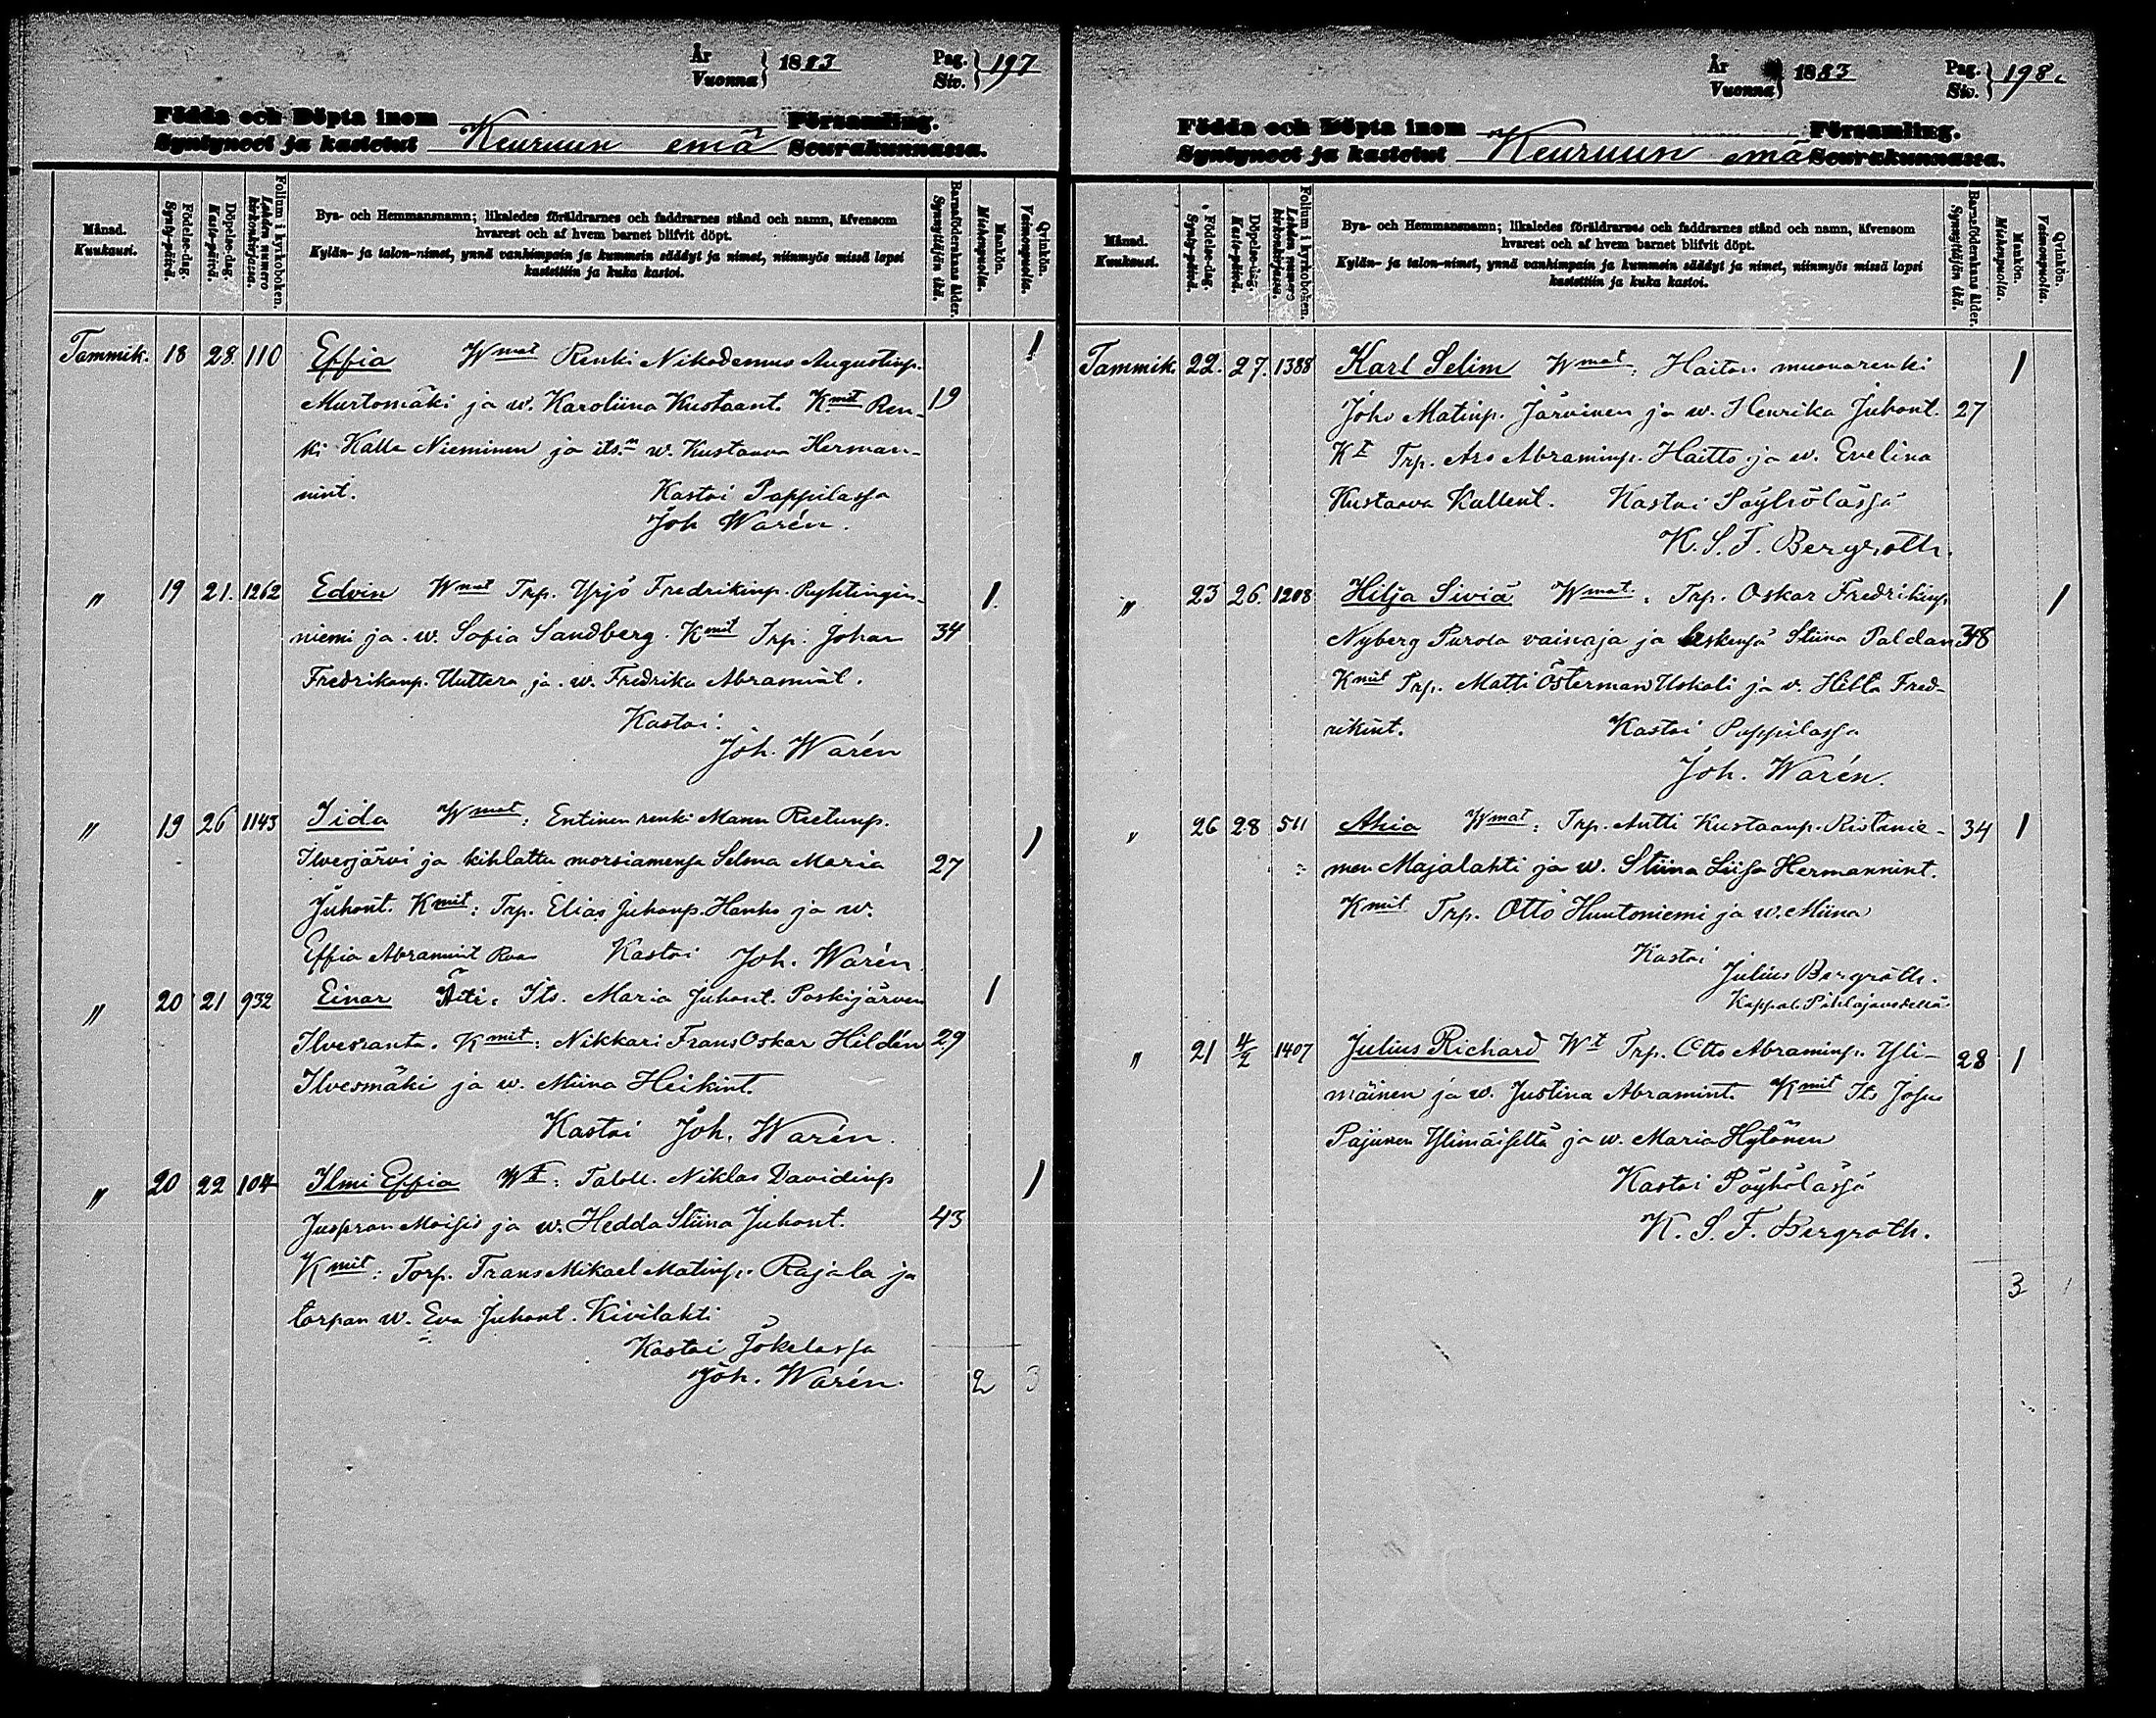 År
Vuonna } 1883
Pag.
Siv. } 197
Födda och Döpta inom Församling.
Syntyneet ja kastetut Keuruun emä Seurakunnassa.
Månad.
Kuukausi.
Födelse-dag.
Synty-päivä.
Döpelse-dag.
Kaste-päivä.
Folium i kyrkoboken.
Lehden numero kirkonkirjassa.
Bya- och Hemmansnamn; likaledes föräldrarnes och faddrarnes stånd och namn, äfvensom
hvarest och af hvem barnet blifvit döpt.
Kylän- ja talon-nimet, ynnä vanhimpain ja kummein säädyt ja nimet, niinmyös missä lapsi
kastettiin ja kuka kastoi.
Barnaföderskans ålder.
Synnyttäjän ikä.
Mankön.
Miehenpuolia.
Qvinkön.
Vaimonpuolia.
Tammik. 18 28. 110 Effia Wmat Renki Nikodemus Augustinp. 1
Murtomäki ja w. Karoliina Kustaant. Kmit Ren- 19
ki Kalle Nieminen ja its.n w. Kustaava Herman-
nint. Kastoi Pappilassa
Joh Warén.
" 19 21. 1262 Edvin Wmat Trp. Yrjö Fredrikinp. Ryhtingin- 1.
niemi ja w. Sofia Sandberg. Kmit Trp. Johan 34
Fredrikanp. Huttera ja w. Fredrika Abramint.
Kastoi:
Joh. Warén
" 19 26 1143 Iida Wmat: Entinen renki Manu Rietunp. 1
Ilvesjärvi ja kihlattu morsiamensa Selma Maria 27
Juhont. Kmit: Trp. Elias Juhonp. Hanho ja w.
Effia Abramint Kastoi Joh. Warén.
" 20 21 932 Einar Äiti: Its. Maria Juhont. Poskijärven 1
Ilvesranta. Kmit: Nikkari Frans Oskar Hildén 29
Ilvesmäki ja w. Miina Heikint.
Kastoi Joh. Warén.
" 20 22 104 Ilmi Effia Wt: Taloll. Niklas Davidinp 1
Juspran Moisio ja w. Hedda Stiina Juhont. 43
Kmit: Torp. Frans Mikael Matinp. Rajala ja
torpan w. Eva Juhont. Kivilahti
Kastoi Jokelassa
Joh. Warén. 2 3
År
Vuonna } 1883
Pag.
Siv. } 198.
Födda och Döpta inom Församling.
Syntyneet ja kastetut Keuruun emä Seurakunnassa.
Månad.
Kuukausi.
Födelse-dag.
Synty-päivä.
Döpelse-dag.
Kaste-päivä.
Folium i kyrkoboken.
Lehden numero kirkonkirjassa.
Bya- och Hemmansnamn; likaledes föräldrarnes och faddrarnes stånd och namn, äfvensom
hvarest och af hvem barnet blifvit döpt.
Kylän- ja talon-nimet, ynnä vanhimpain ja kummein säädyt ja nimet, niinmyös missä lapsi
kastettiin ja kuka kastoi.
Barnaföderskans ålder.
Synnyttäjän ikä.
Mankön.
Miehenpuolia.
Qvinkön.
Vaimonpuolia.
Tammik. 22. 27. 1388 Karl Selim Wmat: Haiton muonarenki 1
Joho Matinp. Järvinen ja w. Henrika Juhont. 27
Kt Trp. Aro Abraminp. Haitto ja w. Evelina
Kustaava Kallent. Kastoi Pöyhölässä
K. S. F. Bergroth.
" 23 26. 1208 Hilja Siviä Wmat: Trp. Oskar Fredrikinp. 1
Nyberg Purola vainaja ja leskensä Stiina Paldan 38
Kmit Trp. Matti Österman Uskali ja v. Hilta Fred-
rikint. Kastoi Pappilassa
Joh. Warén.
" 26 28 511 Ahia Wmat: Trp. Antti Kustaanp. Ristanie- 34 1
men Majalahti ja w. Stiina Liisa Hermannint.
Kmit Trp. Otto Huutoniemi ja w. Miina
Kastoi
Julius Bergroth.
Kappal. Pihlajavedellä
" 21 4/2 1407 Julius Richard Wt Trp. Otto Abraminp. Yli- 28 1
mäinen ja w. Justina Abramint. Kmit Its Josua
Pajunen Ylimäiseltä ja w. Maria Hytönen
Kastoi Pöyhölässä
K. S. F. Bergroth.
3 1